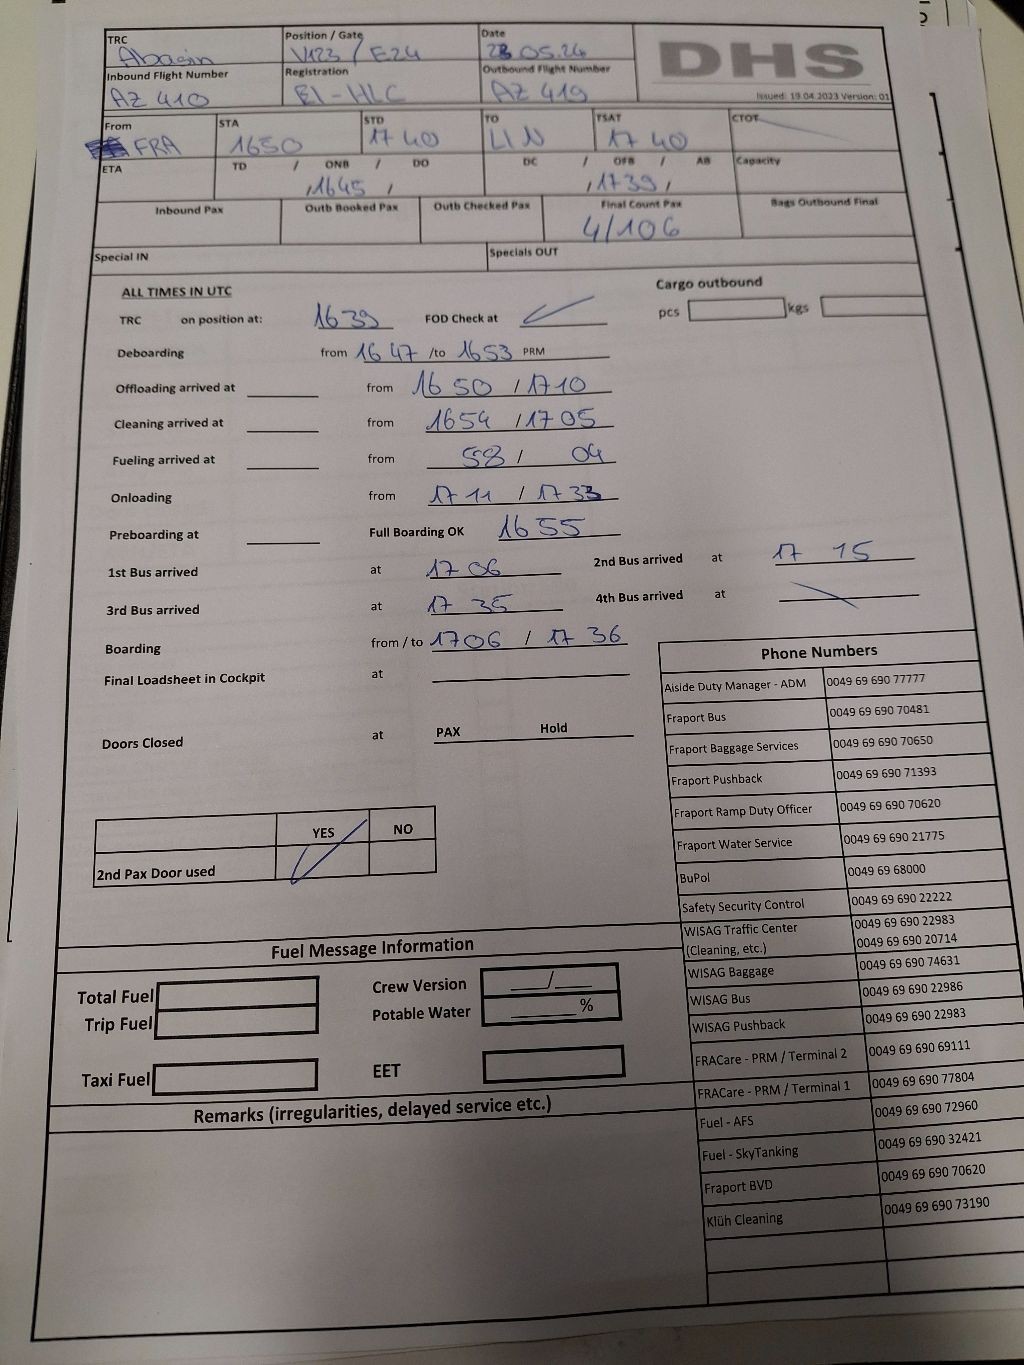 TRC Position / Gate Date DHS
Abacin V123 / E24 28 05.24
Inbound Flight Number Registration Outbound Flight Number
AZ 410 EI-HLC AZ 419 Issued: 19.04.2023 Version: 01
From STA STD TO TSAT CTOT
FRA 1650 1740 LIN 1740
ETA TD / ONB / DO DC / OFB / AB Capacity
/ 1645 / / 1739 /
Inbound Pax Outb Booked Pax Outb Checked Pax Final Count Pax Bags Outbound Final
4/106
Special IN Specials OUT
ALL TIMES IN UTC Cargo outbound
TRC on position at: 1639 FOD Check at pcs kgs
Deboarding from 1647 /to 1653 PRM
Offloading arrived at from 1650 / 1710
Cleaning arrived at from 1654 / 1705
Fueling arrived at from 58 / 04
Onloading from 1711 / 1733
Preboarding at Full Boarding OK 1655
1st Bus arrived at 1706 2nd Bus arrived at 17 15
3rd Bus arrived at 17 35 4th Bus arrived at
Boarding from / to 1706 / 17 36
Final Loadsheet in Cockpit at
Doors Closed at PAX Hold
YES NO
2nd Pax Door used
Phone Numbers
Aiside Duty Manager - ADM 0049 69 690 77777
Fraport Bus 0049 69 690 70481
Fraport Baggage Services 0049 69 690 70650
Fraport Pushback 0049 69 690 71393
Fraport Ramp Duty Officer 0049 69 690 70620
Fraport Water Service 0049 69 690 21775
BuPol 0049 69 68000
Safety Security Control 0049 69 690 22222
WISAG Traffic Center 0049 69 690 22983
(Cleaning, etc.) 0049 69 690 20714
WISAG Baggage 0049 69 690 74631
WISAG Bus 0049 69 690 22986
WISAG Pushback 0049 69 690 22983
FRACare - PRM / Terminal 2 0049 69 690 69111
FRACare - PRM / Terminal 1 0049 69 690 77804
Fuel - AFS 0049 69 690 72960
Fuel - SkyTanking 0049 69 690 32421
Fraport BVD 0049 69 690 70620
Klüh Cleaning 0049 69 690 73190
Fuel Message Information
Total Fuel Crew Version /
Trip Fuel Potable Water %
Taxi Fuel EET
Remarks (irregularities, delayed service etc.)